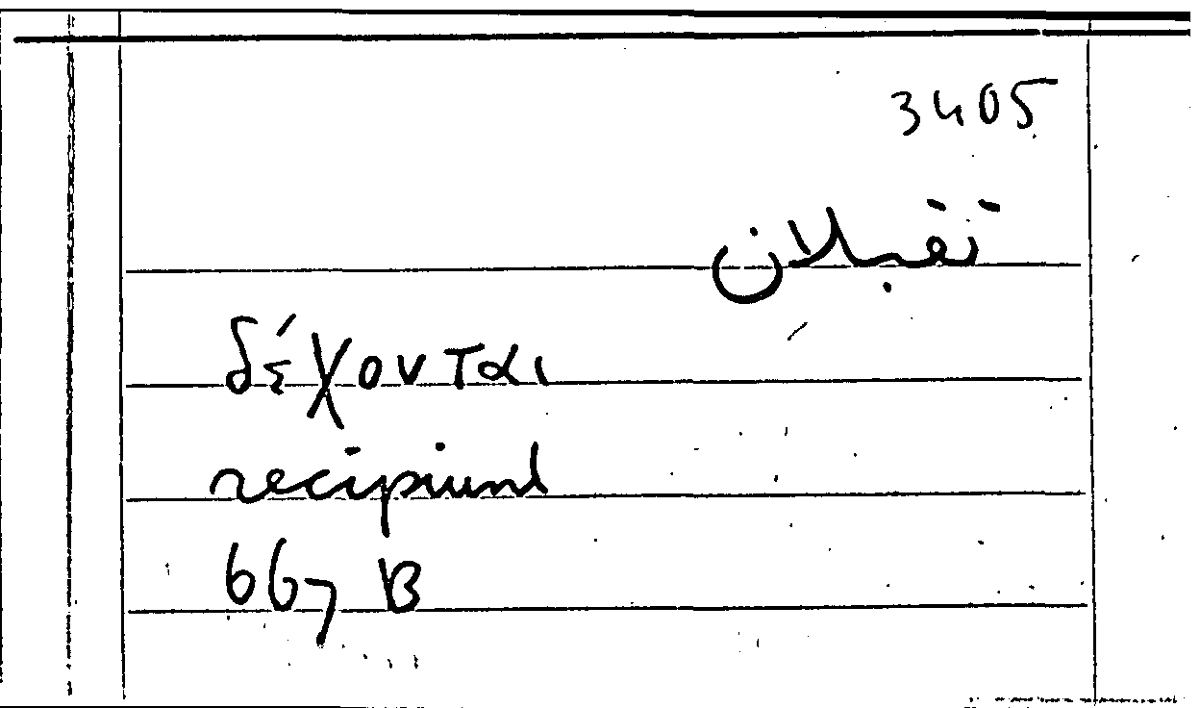 3405
تقبلان
δέχονται
recipiunt
667 B